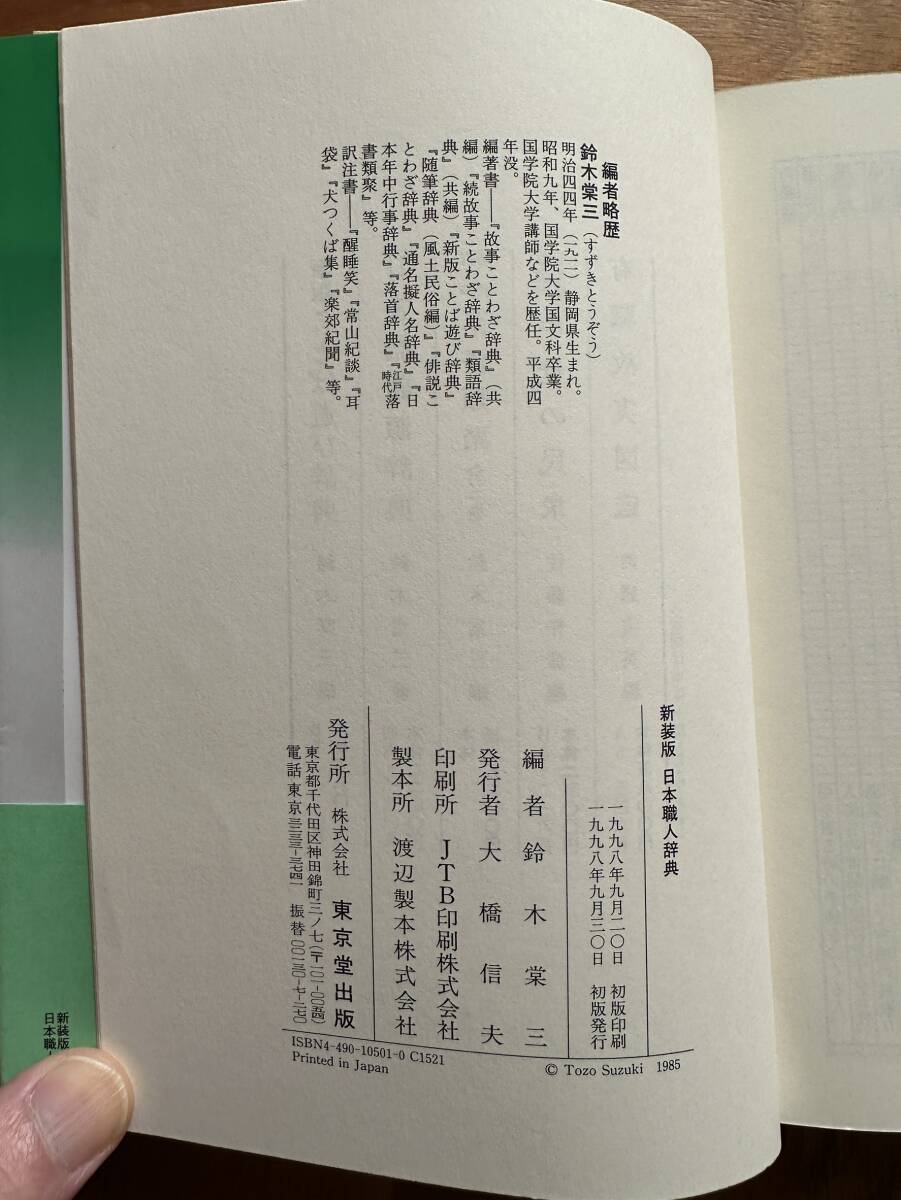 編者略歴
鈴木棠三（すずきとうぞう）
明治四四年（一九一一）静岡県生まれ。
昭和九年、国学院大学国文科卒業。
国学院大学講師などを歴任。平成四
年没。
編著書――『故事ことわざ辞典』（共
編）『続故事ことわざ辞典』『類語辞
典』（共編）『新版ことば遊び辞典』
『随筆辞典（風土民俗編）』『俳説こ
とわざ辞典』『通名擬人名辞典』『日
本年中行事辞典』『落首辞典』『江戸時代落
書類聚』等。
訳注書――『醒睡笑』『常山紀談』『耳
袋』『犬つくば集』『楽郊紀聞』等。
新装版 日本職人辞典
一九九八年九月二〇日 初版印刷
一九九八年九月三〇日 初版発行
編者 鈴木棠三
発行者 大橋信夫
印刷所 JTB印刷株式会社
製本所 渡辺製本株式会社
発行所 株式会社 東京堂出版
東京都千代田区神田錦町三ノ七（〒一〇一-〇〇五四）
電話 東京三二三三-三七四一 振替〇〇一三〇-七-二七〇
ISBN4-490-10501-0 C1521
Printed in Japan
© Tozo Suzuki 1985
新装版
日本職人